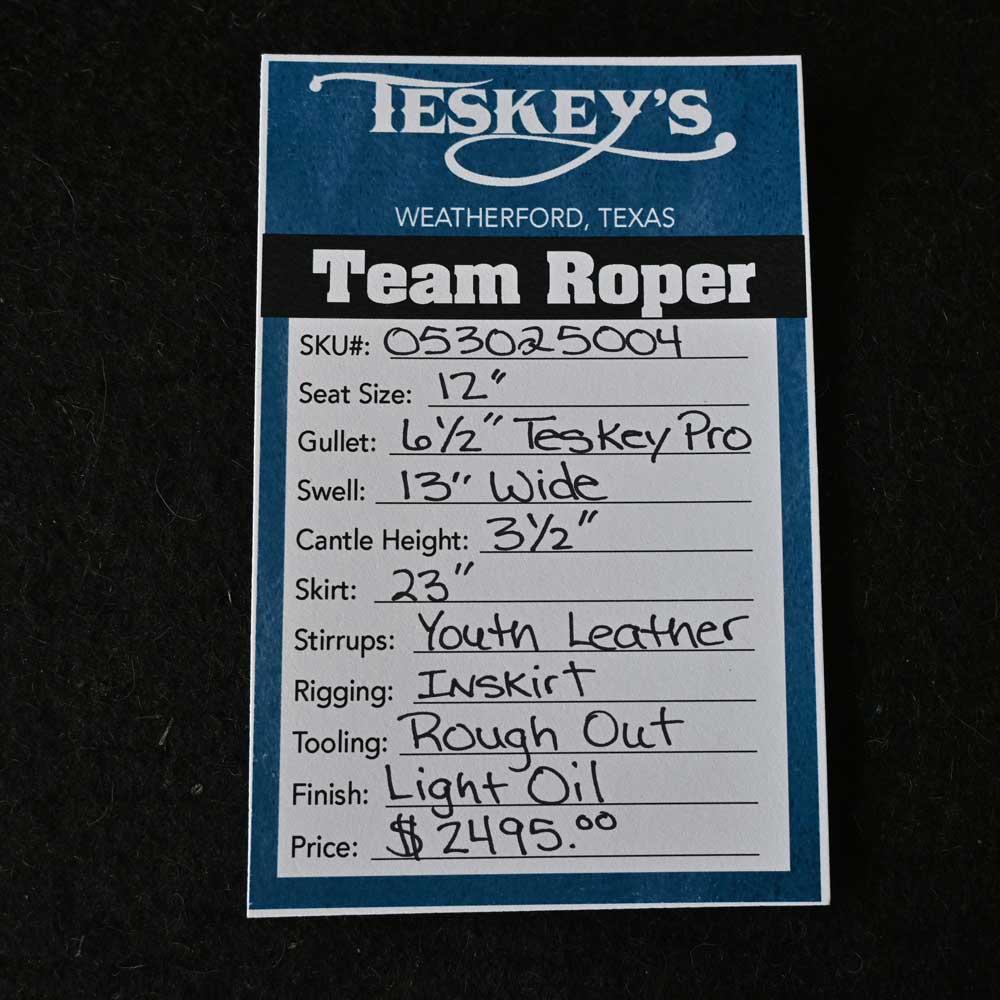 TESKEY'S
WEATHERFORD, TEXAS
Team Roper
SKU#: 053025004
Seat Size: 12"
Gullet: 6 1/2" Teskey Pro
Swell: 13" Wide
Cantle Height: 3 1/2"
Skirt: 23"
Stirrups: Youth Leather
Rigging: Inskirt
Tooling: Rough Out
Finish: Light Oil
Price: $2495.00